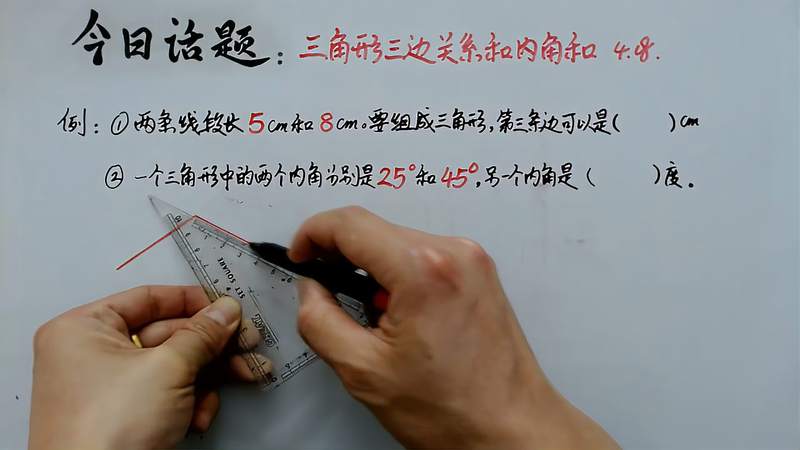 今日话题：三角形三边关系和内角和 4.8.
例：①两条线段长5cm和8cm。要组成三角形，第三条边可以是（ ）cm
②一个三角形中的两个内角分别是25°和45°，另一个内角是（ ）度。
SET SQUARE